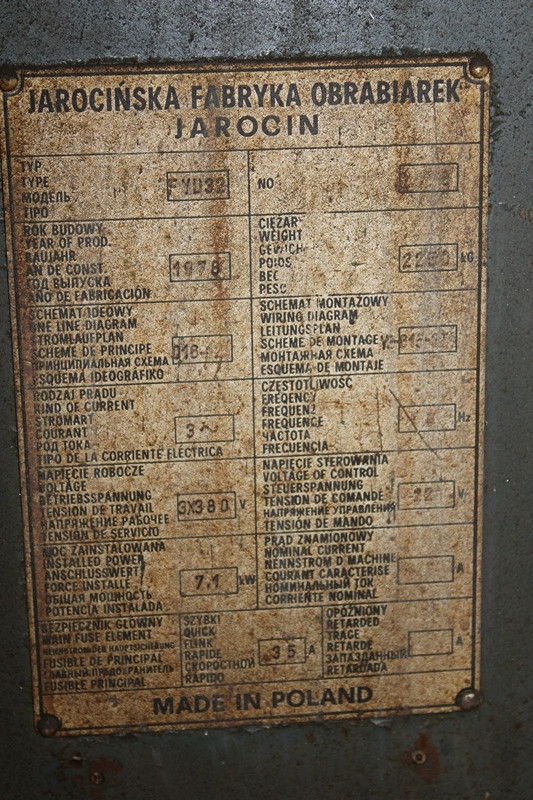 JAROCIŃSKA FABRYKA OBRABIAREK
JAROCIN
TYP
TYPE
МОДЕЛЬ
TIPO
FYD32
NO
ROK BUDOWY
YEAR OF PROD.
BAUJAHR
AN DE CONST.
ГОД ВЫПУСКА
AÑO DE FABRICACIÓN
1978
CIĘŻAR
WEIGHT
GEWICHT
POIDS
ВЕС
PESO
2250 KG
SCHEMAT IDEOWY
ONE LINE DIAGRAM
STROMLAUFPLAN
SCHEME DE PRINCIPE
ПРИНЦИПИАЛЬНАЯ СХЕМА
ESQUEMA IDEOGRÁFIKO
SCHEMAT MONTAŻOWY
WIRING DIAGRAM
LEITUNGSPLAN
SCHEME DE MONTAGE
МОНТАЖНАЯ СХЕМА
ESQUEMA DE MONTAJE
RODZAJ PRĄDU
KIND OF CURRENT
STROMART
COURANT
РОД ТОКА
TIPO DE LA CORRIENTE ELÉCTRICA
3~
CZĘSTOTLIWOŚĆ
FREQENCY
FREQUENZ
FREQUENCE
ЧАСТОТА
FRECUENCIA
Hz
NAPIĘCIE ROBOCZE
VOLTAGE
BETRIEBSSPANNUNG
TENSION DE TRAVAIL
НАПРЯЖЕНИЕ РАБОЧЕЕ
TENSION DE SERVICIO
3X380 V
NAPIĘCIE STEROWANIA
VOLTAGE OF CONTROL
STEUERSPANNUNG
TENSION DE COMANDE
НАПРЯЖЕНИЕ УПРАВЛЕНИЯ
TENSIÓN DE MANDO
V
MOC ZAINSTALOWANA
INSTALLED POWER
ANSCHLUSSWERT
FORCE INSTALLE
ОБЩАЯ МОЩНОСТЬ
POTENCIA INSTALADA
7.1 kW
PRĄD ZNAMIONOWY
NOMINAL CURRENT
NENNSTROM D MACHINE
COURANT CARACTERISE
НОМИНАЛЬНЫЙ ТОК
CORRIENTE NOMINAL
A
BEZPIECZNIK GŁÓWNY
MAIN FUSE ELEMENT
NENNSTROM DER HAUPTSICHERUNG
FUSIBLE DE PRINCIPAL
ГЛАВНЫЙ ПРЕДОХРАНИТЕЛЬ
FUSIBLE PRINCIPAL
SZYBKI
QUICK
FLINK
RAPIDE
СКОРОСТНОЙ
RÁPIDO
35 A
OPÓŹNIONY
RETARDED
TRÄGE
RETARDE
ЗАПАЗДАННЫЙ
RETARDADA
A
MADE IN POLAND